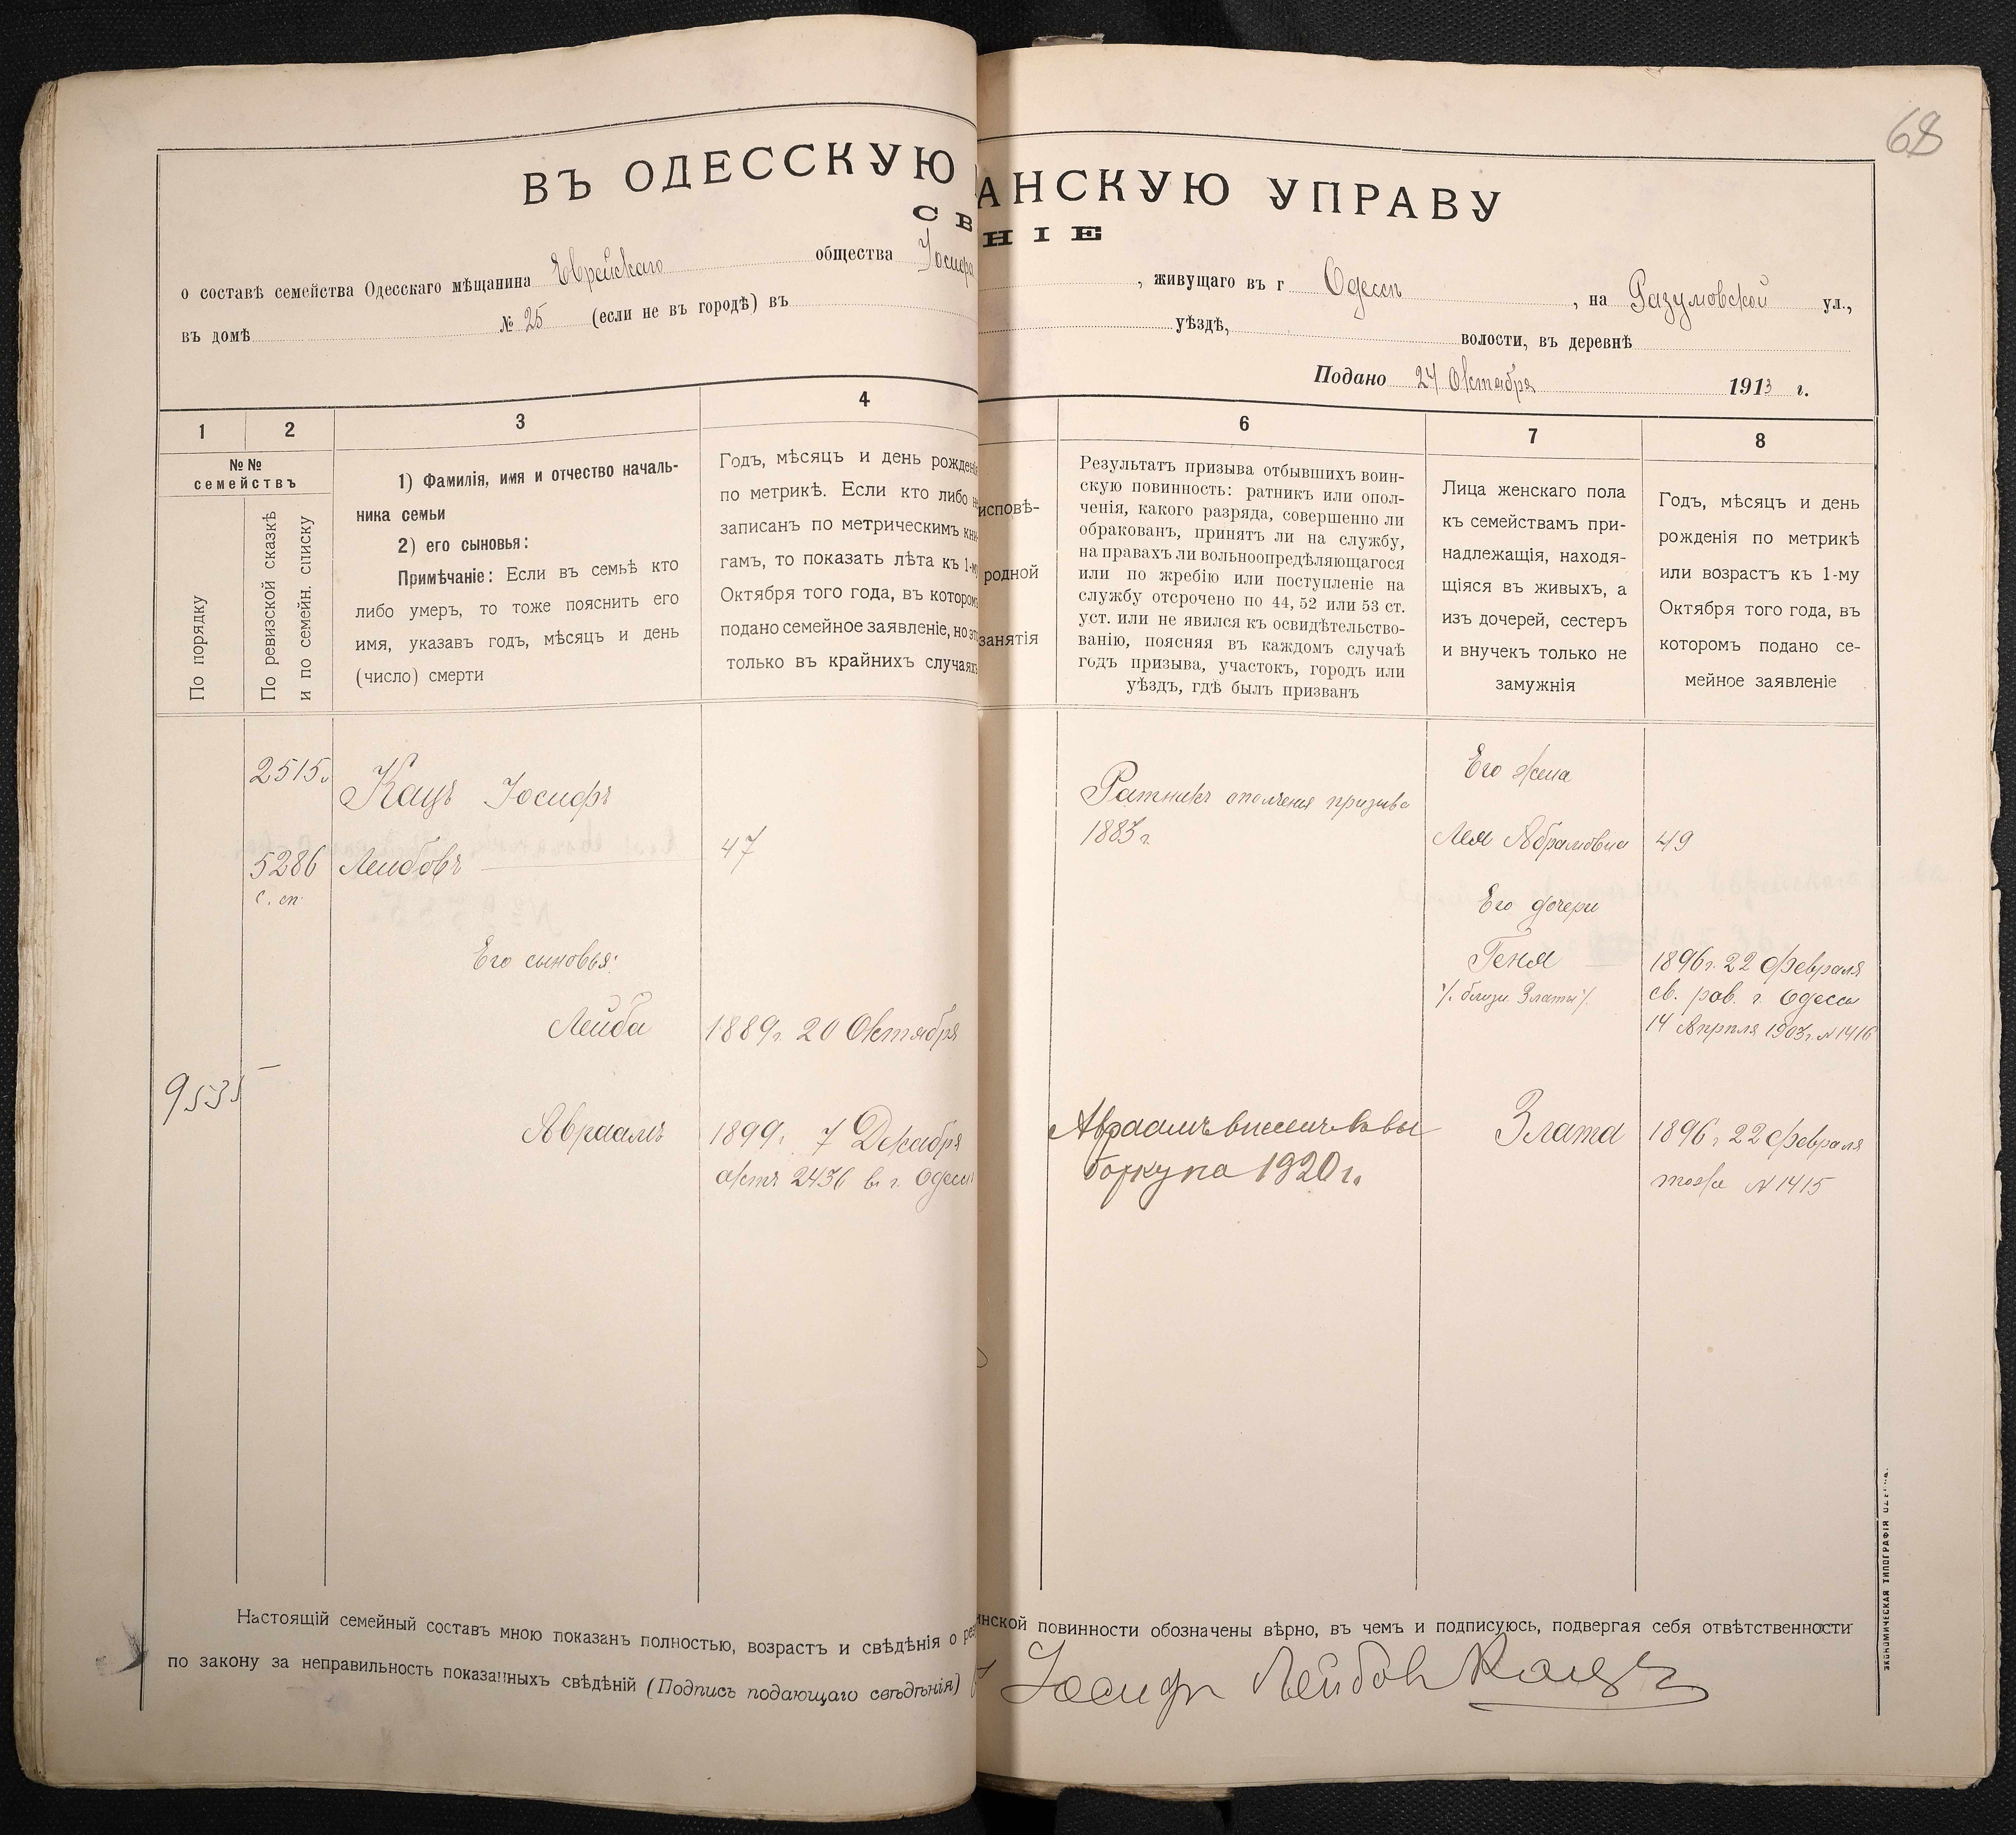 68
ВЪ ОДЕССКУЮ АНСКУЮ УПРАВУ
СВ НІЕ
о составѣ семейства Одесскаго мѣщанина Еврейскаго общества Іосифа , живущаго въ г Одессѣ , на Разумовской ул.,
въ домѣ № 25 (если не въ городѣ) въ уѣздѣ, волости, въ деревнѣ
Подано 24 Октября 1913 г.
1 2 3 4 6 7 8
№№
семействъ
По порядку
По ревизской сказкѣ
и по семейн. списку
1) Фамилія, имя и отчество началь-
ника семьи
2) его сыновья:
Примѣчаніе: Если въ семьѣ кто
либо умеръ, то тоже пояснить его
имя, указавъ годъ, мѣсяцъ и день
(число) смерти
Годъ, мѣсяцъ и день рожденія
по метрикѣ. Если кто либо не
записанъ по метрическимъ кни-
гамъ, то показать лѣта къ 1-му
Октября того года, въ которомъ
подано семейное заявленіе, но это
только въ крайнихъ случаяхъ
исповѣ-
родной
занятія
Результатъ призыва отбывшихъ воин-
скую повинность: ратникъ или опол-
ченія, какого разряда, совершенно ли
обракованъ, принятъ ли на службу,
на правахъ ли вольноопредѣляющагося
или по жребію или поступленіе на
службу отсрочено по 44, 52 или 53 ст.
уст. или не явился къ освидѣтельство-
ванію, поясняя въ каждомъ случаѣ
годъ призыва, участокъ, городъ или
уѣздъ, гдѣ былъ призванъ
Лица женскаго пола
къ семействамъ при-
надлежащія, находя-
щіяся въ живыхъ, а
изъ дочерей, сестеръ
и внучекъ только не
замужнія
Годъ, мѣсяцъ и день
рожденія по метрикѣ
или возрастъ къ 1-му
Октября того года, въ
которомъ подано се-
мейное заявленіе
2515
Кацъ Іосифъ
Ратникъ ополченія призыва
1883 г.
Его жена
5286 Лейбовъ 47
с. сп.
Лея Абрамовна 49
Его дочери
Его сыновья:
Геня 1896 г. 22 Февраля
/. близн. Златы /. св. рав. г. Одессы
14 Апрѣля 1903 г. N 1416
Лейба 1889 г. 20 Октября
9535
Авраамъ 1899 г. 7 Декабря
актъ 2436 въ г. Одессѣ
Авраамъ внесенъ въ вы
борку на 1920 г.
Злата 1896 г. 22 Февраля
тоже N 1415
Настоящій семейный составъ мною показанъ полностью, возрастъ и свѣдѣнія о рез инской повинности обозначены вѣрно, въ чемъ и подписуюсь, подвергая себя отвѣтственности
по закону за неправильность показанныхъ свѣдѣній (Подпись подающаго свѣдѣнія) Іосифъ Лейбов Кацъ
ЭКОНОМИЧЕСКАЯ ТИПОГРАФІЯ